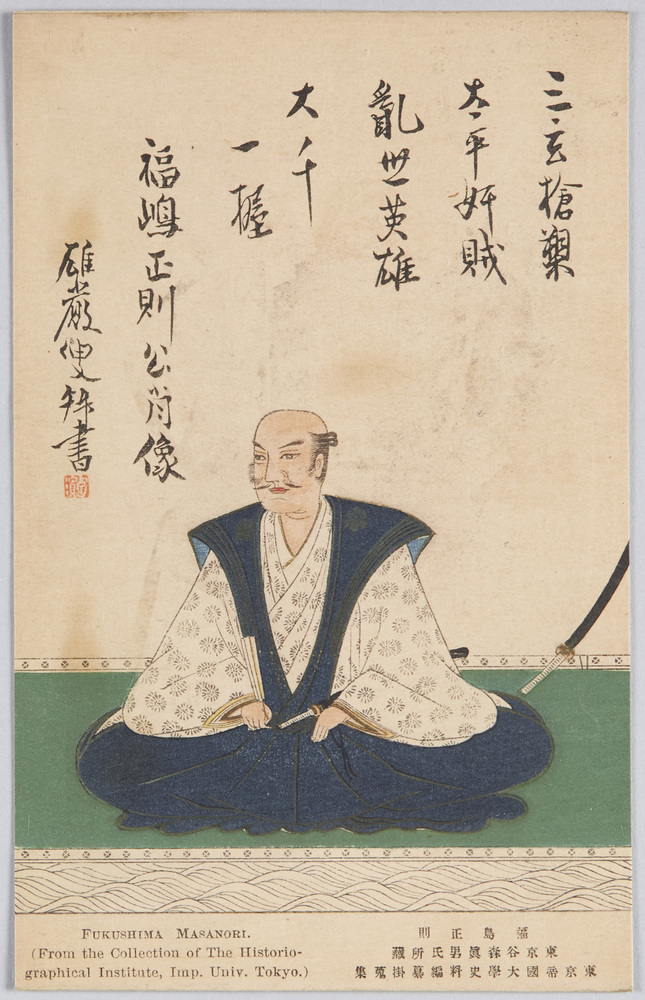 三玄槍槊
太平奸賊
亂世英雄
大千
一握
福嶋正則公肖像
雄嚴叟拜書
FUKUSHIMA MASANORI.
(From the Collection of The Historio-
graphical Institute, Imp. Univ. Tokyo.)
福島正則
東京谷森眞男氏所藏
東京帝國大學史料編纂掛蒐集